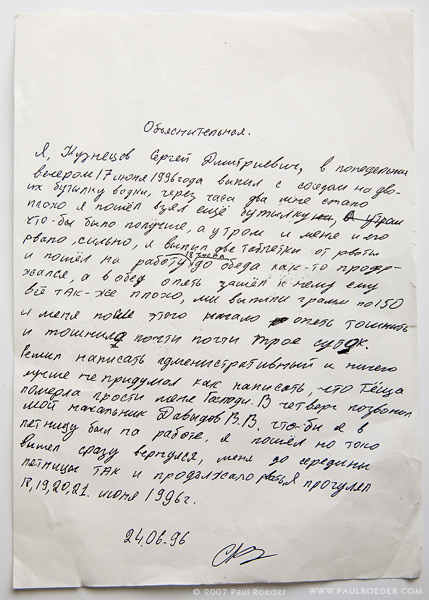 Объяснительная.
Я, Кузнецов Сергей Дмитриевич, в понедельник
вечером 17 июня 1996 года выпил с соседом на дво-
их бутылку водки, через часа два мне стало
плохо я пошёл взял ещё бутылку
что-бы было получше, а утром и меня и его
рвало, сильно, я выпил две таблетки от рвоты
и пошёл на работу 18 июня до обеда как-то продер-
жался, а в обед опеть зашёл к нему ему
всё так-же плохо, мы выпили грамм по 150
и меня после этого начало опеть тошнить
и тошнило почти почти трое суток.
Решил написать административный и ничего
лучше не придумал как написать, что Тёща
померла прости меня Господи. В четверг позвонил
мой начальник Давыдов В.В. что-бы я в
пятницу был на работе, я пошёл но токо
вышел сразу вернулся, меня до середины
пятницы так и продолжало рвать Я прогулял
18, 19, 20, 21. июня 1996 г.
24.06-96
© 2007 Paul Roeder
WWW.PAULROEDER.COM